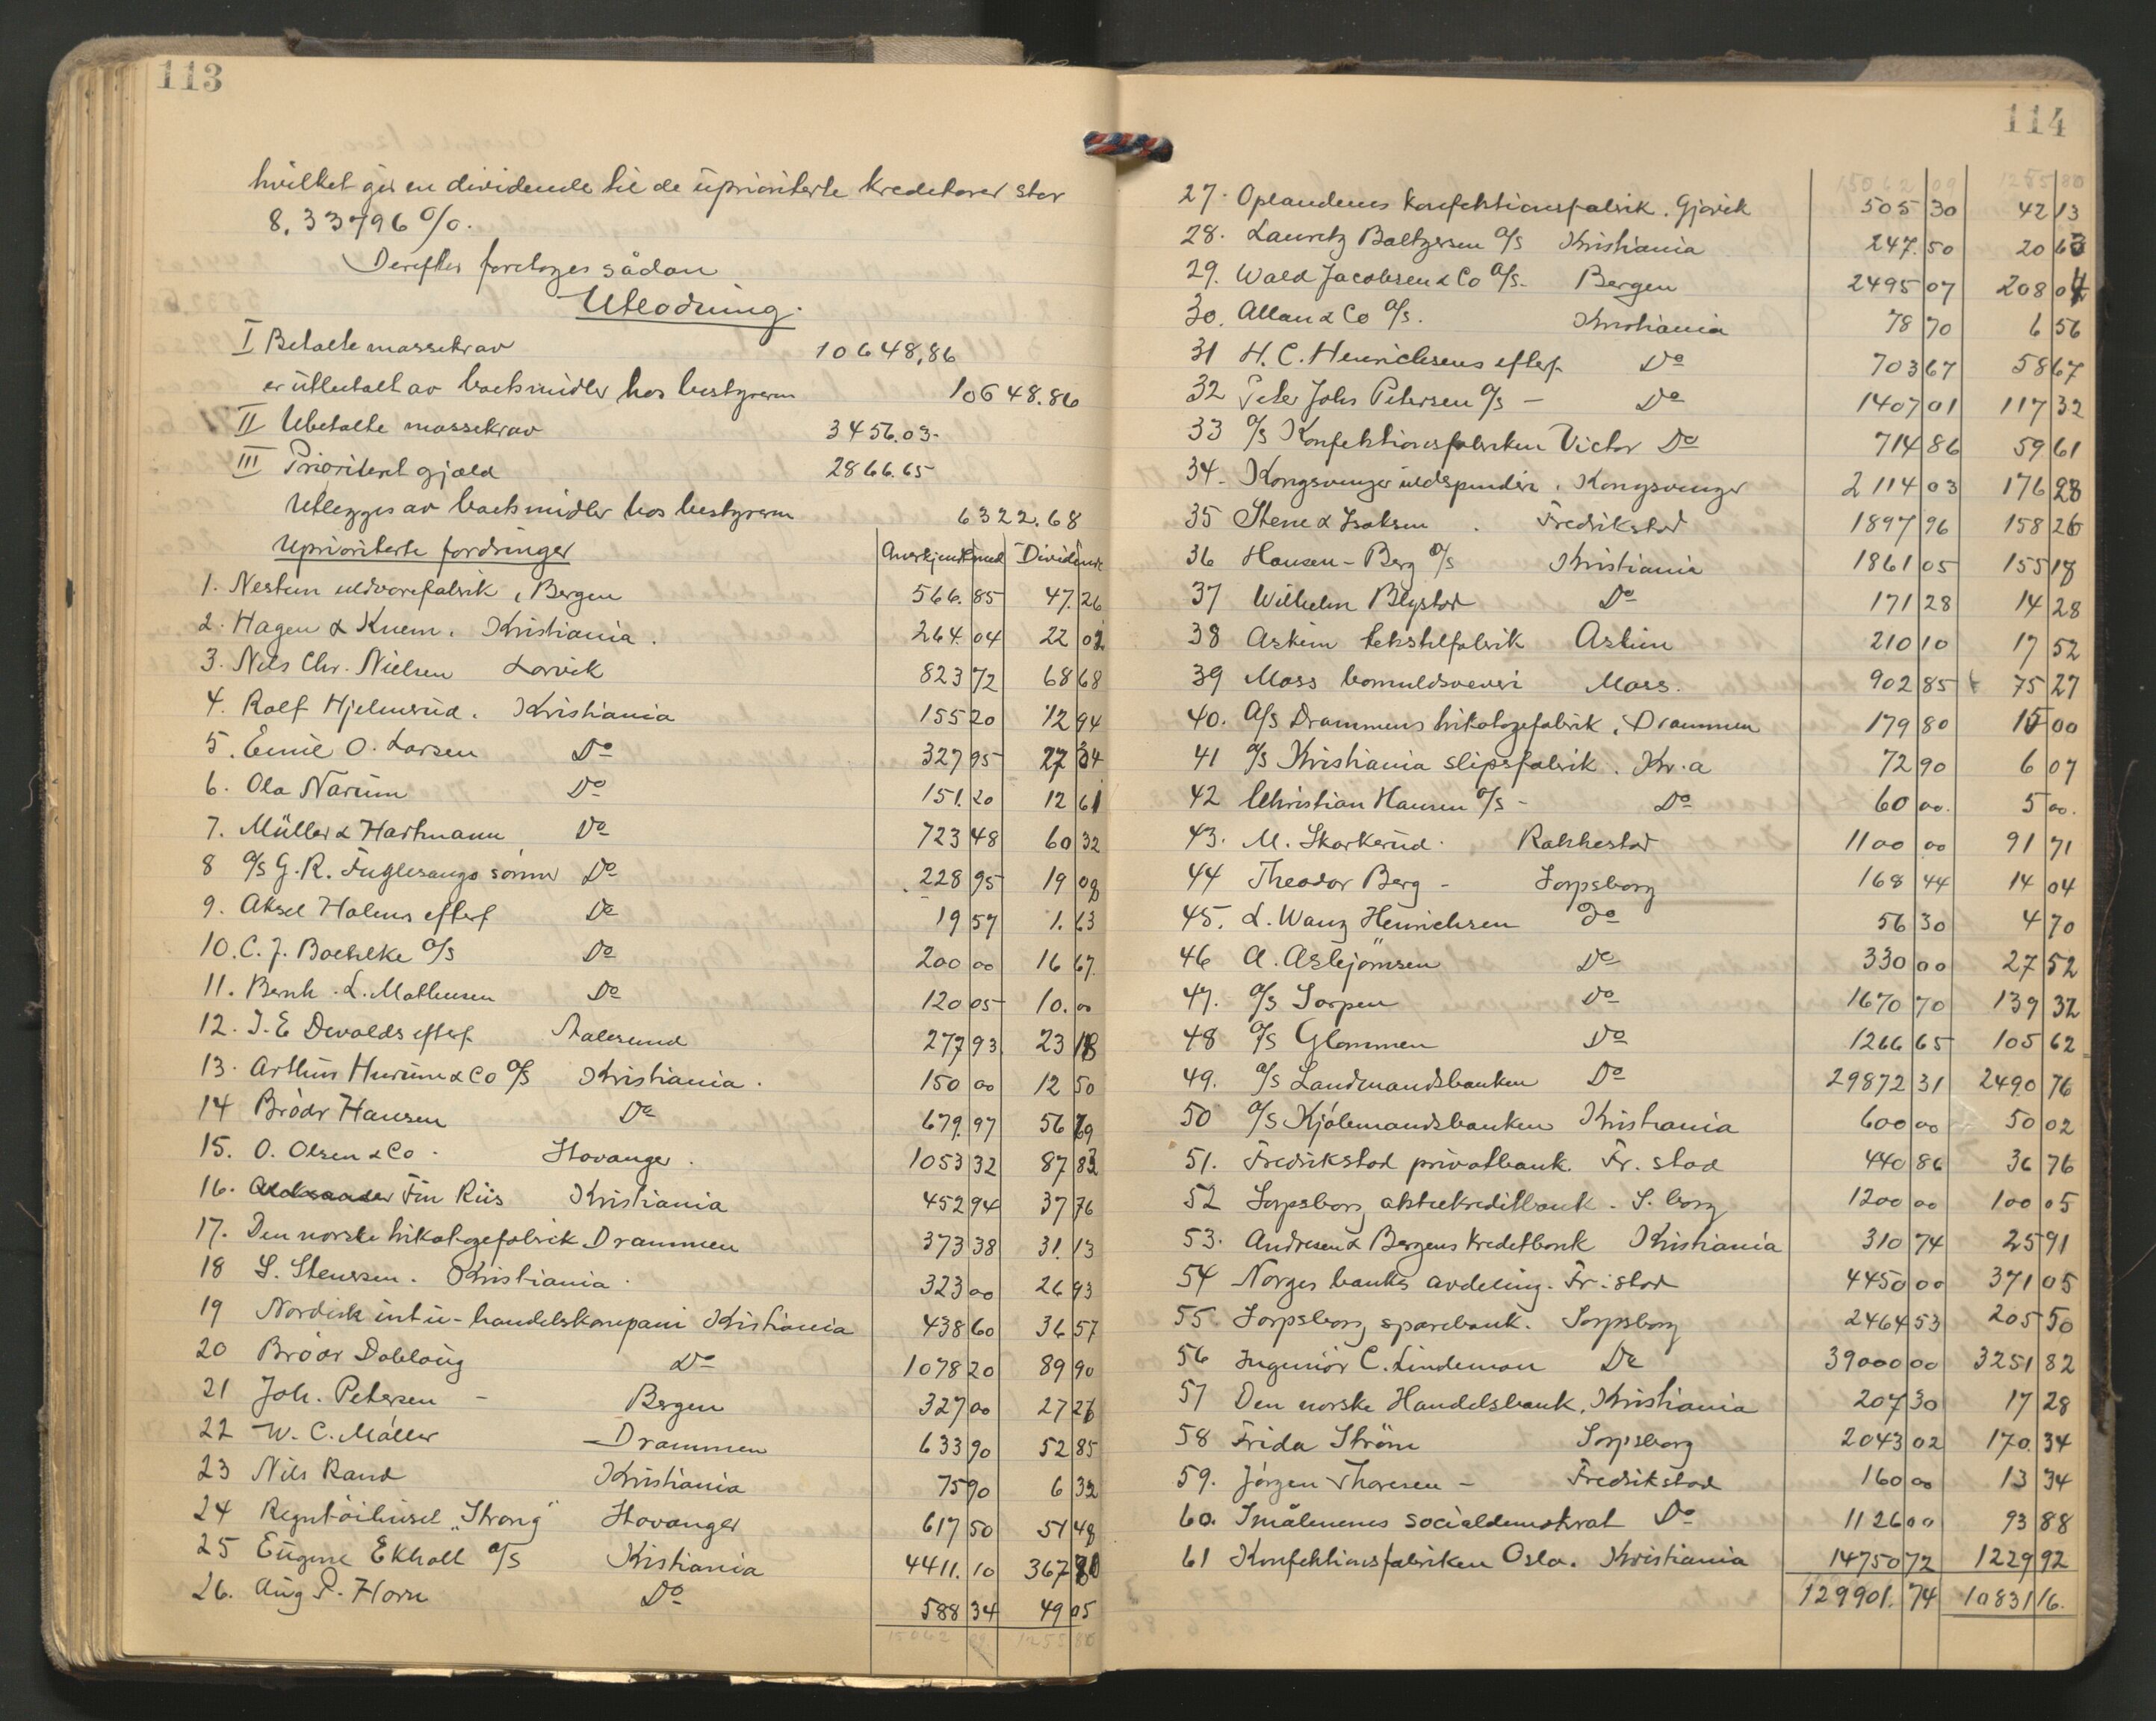 113
hvilket gir en dividende til de uprioriterte kreditorer stor
8,33796 %.
Derefter foretoges sådan
Utlodning.
I Betalte massekrav 10648,86
er utbetalt av boets midler hos bestyreren 10648.86
II Ubetalte massekrav 3456.03.
III Prioritert gjæld 2866.65
Utlegges av boets midler hos bestyreren 6322.68
Uprioriterte fordringer Anerkjent med Dividende
1. Nestun uldvarefabrik, Bergen 566.85 47.26
2. Hagen & Knem. Kristiania. 264.04 22 02
3. Nils Chr. Nielsen Larvik 823 72 68 68
4. Rolf Hjelmerud. Kristiania 155 20 12 94
5. Emil O. Larsen Do 327 95 27 34
6. Ola Narum Do 151.20 12 61
7. Müller & Hartmann Do 723 48 60 32
8 A/S G. R. Fuglesangs sønner Do 228 95 19 09
9. Aksel Holms efterf Do 19 57 1.63
10. C. J. Boehlke A/S Do 200 00 16 67
11. Bernh. L. Mathesen Do 120 05 10.00
12. I. E Devolds efterf. Aalesund 277 93 23 18
13. Arthur Hurum & Co A/S Kristiania. 150 00 12 50
14 Brødr Hansen Do 679.97 56 69
15. O. Olsen & Co. Stavanger. 1053 32 87 83
16. Fin Riis Kristiania 452 94 37 76
17. Den norske trikotagefabrik Drammen 373 38 31.13
18 S. Stenersen. Kristiania. 323 00 26 93
19 Nordisk int u-handelskompani Kristiania 438 60 36 57
20 Brødr Dobloug Do 1078 20 89 90
21 Joh. Petersen - Bergen 327 00 27 26
22 W. C. Møller Drammen 633 90 52 85
23 Nils Rand Kristiania 75 90 6 32
24 Regntøihuset "Strong" Stavanger 617 50 51 48
25 Eugene Ekholt A/S Kristiania 4411.10 367 80
26. Aug P. Horn Do 588 34 49 05
15062 09 1255 80
114
15062 09 1255 80
27. Oplandenes konfektionsfabrik. Gjøvik 505 30 42 13
28. Lauritz Baltzersen A/S Kristiania 247.50 20 63
29. Wald Jacobsen & Co A/S. Bergen 2495 07 208 04
30. Allan & Co A/S. Kristiania 78 70 6 56
31 H. C. Henrichsens efterf. Do 703 67 58 67
32 Peter Johs Petersen A/S - Do 1407 01 117 32
33 A/S Konfektionsfabriken Victor Do 714 86 59 61
34. Kongsvinger uldspinderi. Kongsvinger 2114 03 176 28
35 Stene & Isaksen. Fredrikstad 1897 96 158 26
36 Hansen-Berg A/S Kristiania 1861 05 155 18
37 Wilhelm Blystad Do 171 28 14 28
38 Askim tekstilfabrik Askim 210 10 17 52
39 Moss bomuldsveveri Moss. 902 85 75 27
40. A/S Drammens trikotagefabrik, Drammen 179 80 15 00
41 A/S Kristiania slipsfabrik. Kr.a 72 90 6 07
42 Christian Hansen A/S - Do 60 00. 5 00.
43. M. Skarkerud. Rakkestad 1100 00 91 71
44 Theodor Berg - Sarpsborg 168 44 14 04
45. L. Wang Henrichsen Do 56 30 4 70
46 A. Asbjörnsen Do 330 00 27 52
47. A/S Sarpen Do 1670 70 139 32
48 A/S Glommen Do 1266 65 105 62
49. A/S Landmandsbanken Do 29872 31 2490 76
50 A/S Kjøbmandsbanken Kristiania 600 00 50 02
51. Fredrikstad privatbank. Fr.stad 440 86 36 76
52 Sarpsborg aktiekreditbank. S.borg 1200 00 100 05
53. Andresen & Bergens kreditbank Kristiania 310 74 25 91
54 Norges banks avdeling. Fr:stad 4450 00 371 05
55 Sarpsborg sparebank. Sarpsborg 2464 53 205 50
56 Ingeniør C. Lindeman Do 39000 00 3251 82
57 Den norske Handelsbank, Kristiania 207 30 17 28
58 Frida Strøm Sarpsborg 2043 02 170.34
59. Jørgen Thoresen - Fredrikstad 160 00 13 34
60. Smålenenes socialdemokrat Do 1126 00 93 88
61 Konfektionsfabriken Oslo. Kristiania 14750 72 1229 92
129901.74 10831 16.